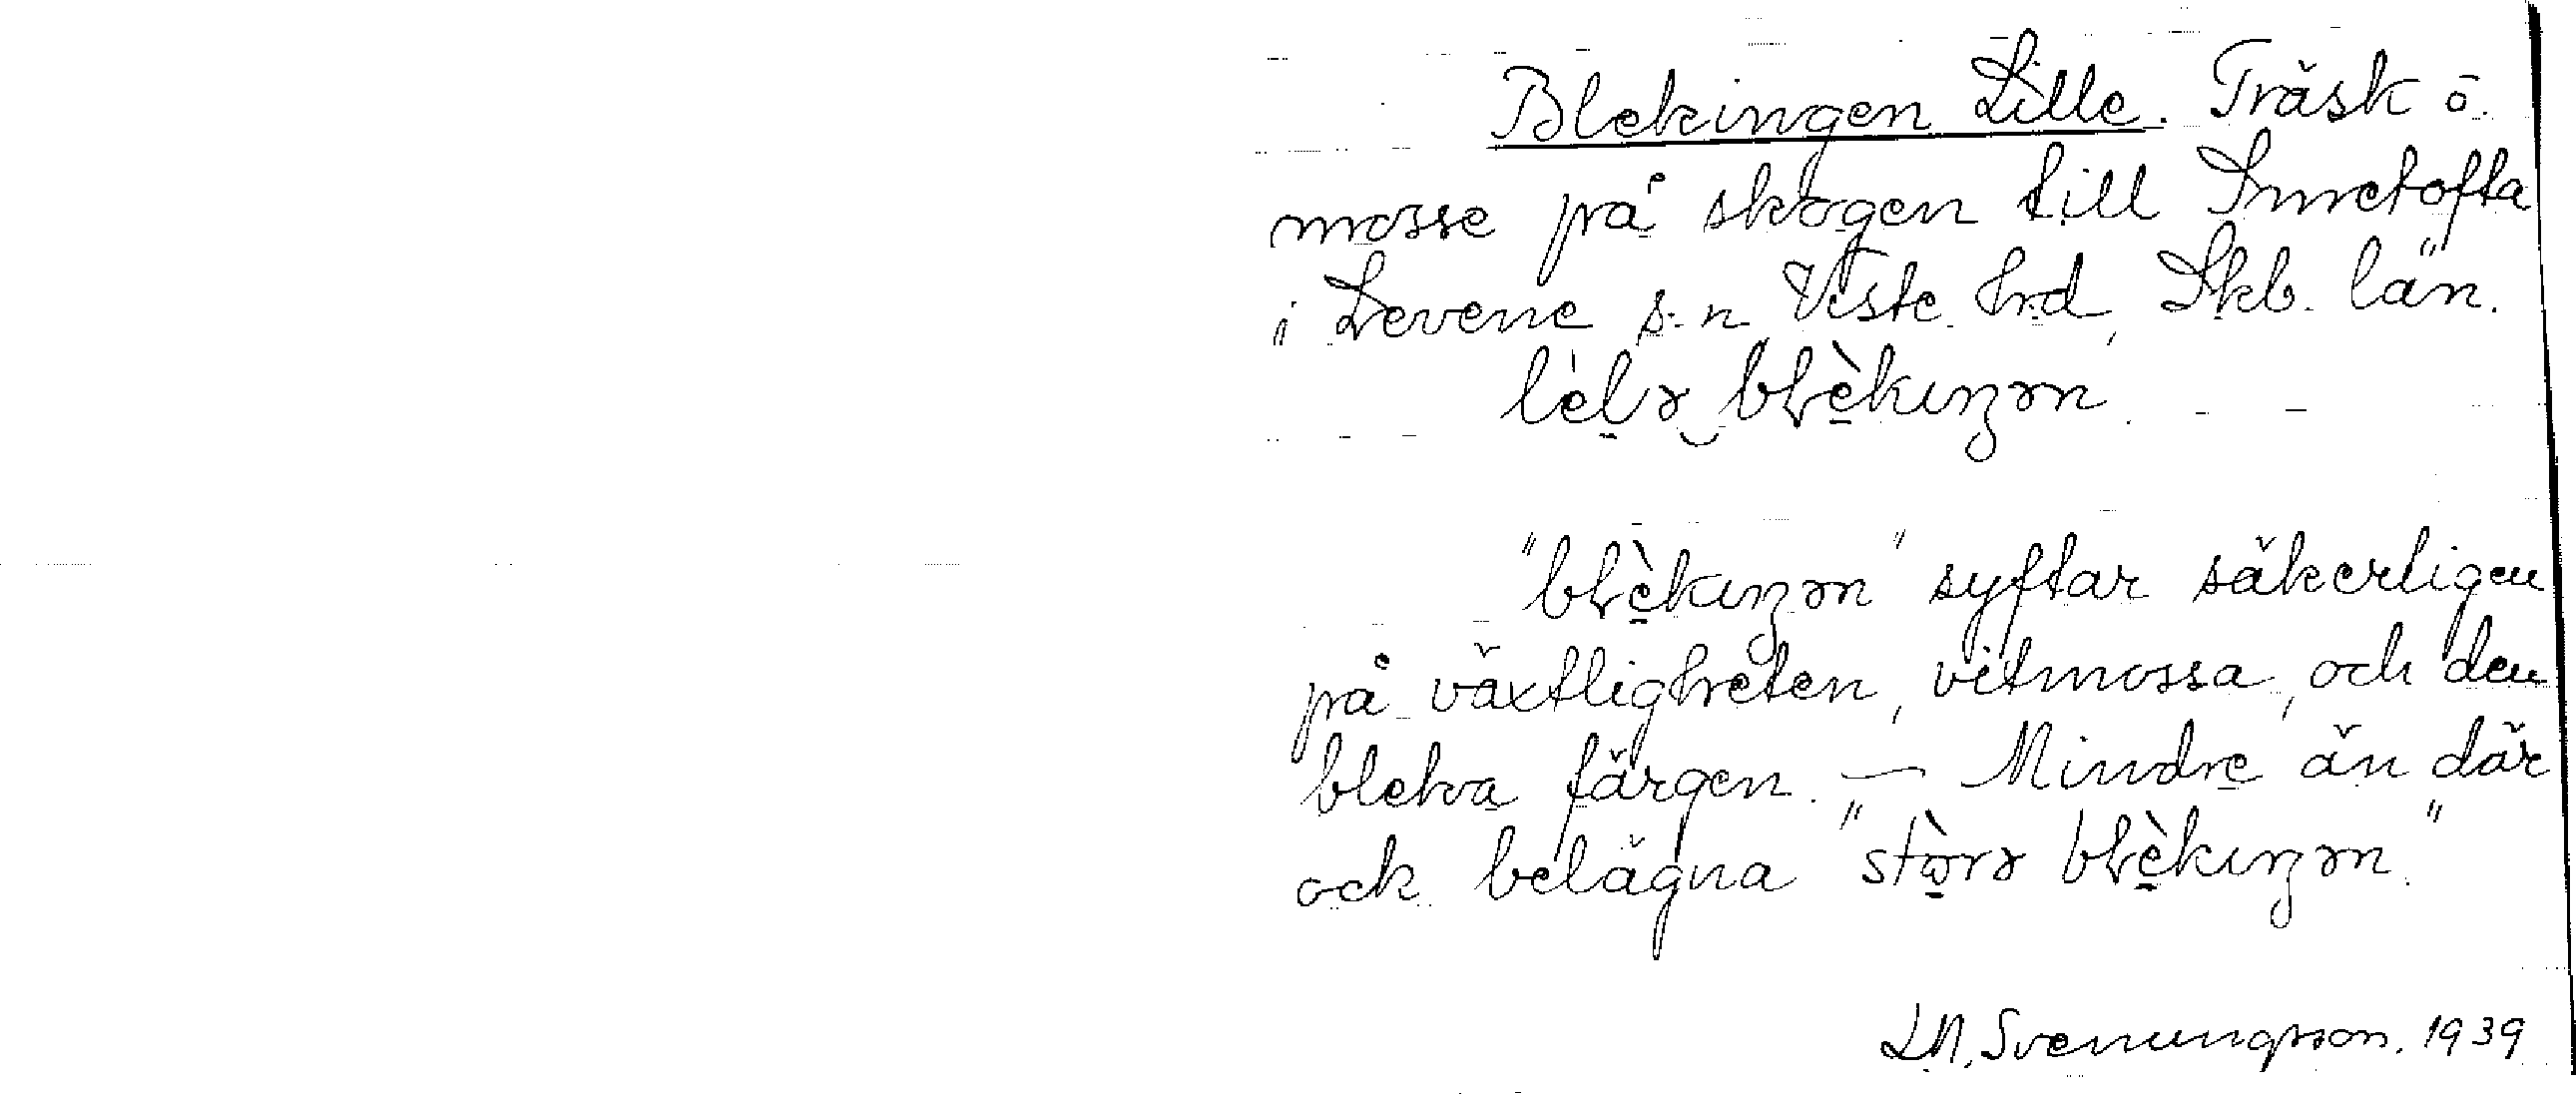 Blekingen Lille. Träsk o.
mosse på skogen till Smetofta
i Levene s-n, Viste hrd, Skb. län.
lèlə blèkıŋən.
"blèkıŋən" syftar säkerligen
på växtligheten, vitmossa, och den
bleka färgen. — Mindre än där
ock belägna "stòrə blèkıŋən."
L.N. Svenungsson. 1939